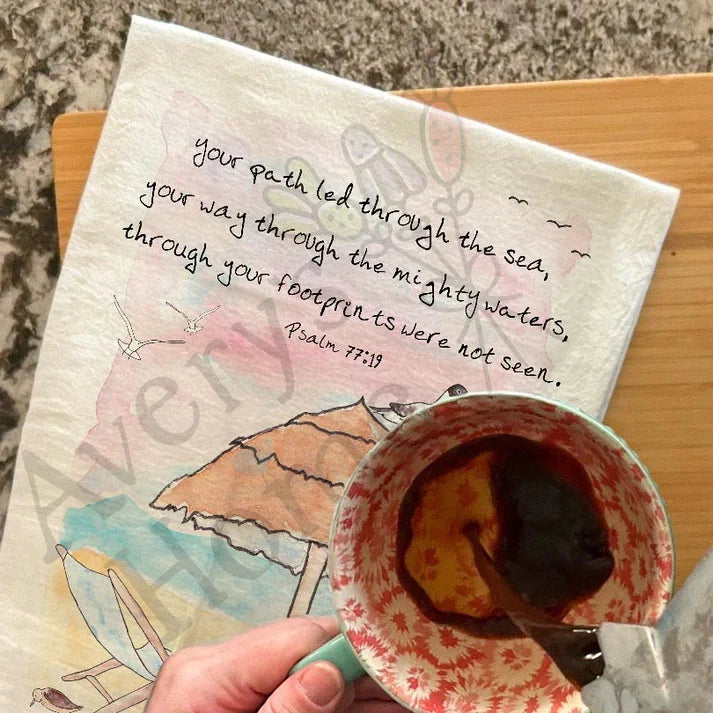 your path led through the sea,
your way through the mighty waters,
through your footprints were not seen.
Psalm 77:19
Avery's
Home